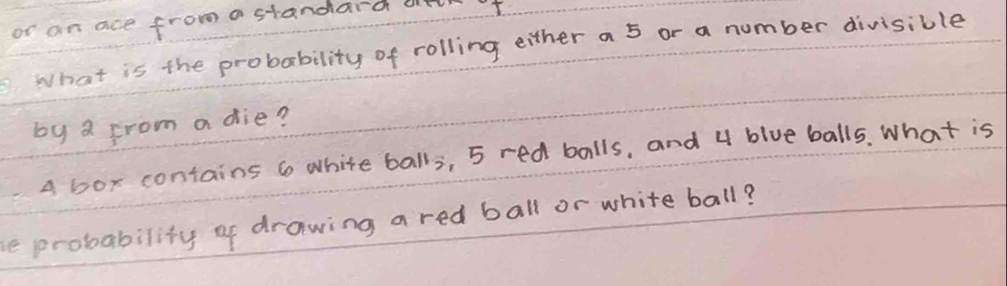 or an ace from a standard
What is the probability of rolling either a 5 or a number divisible
by 2 from a die?
A box contains 6 white balls, 5 red balls, and 4 blue balls. What is
probability of drawing a red ball or white ball?